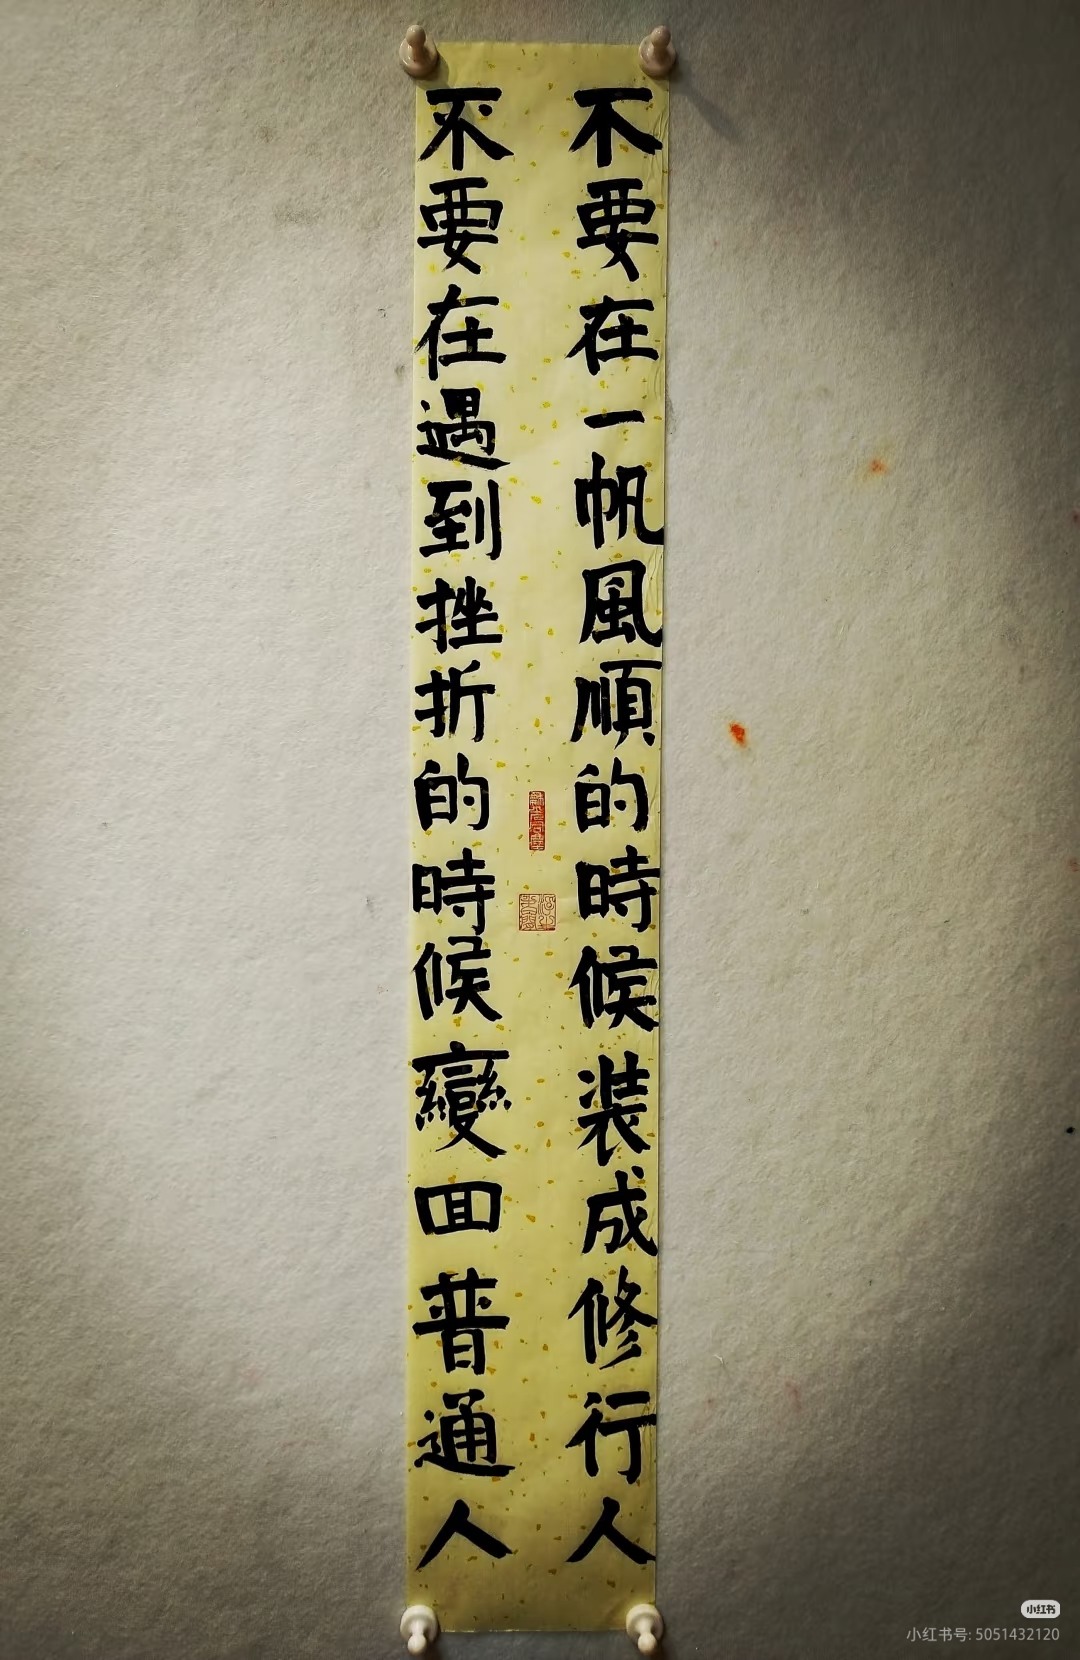 不要在一帆風順的時候装成修行人
不要在遇到挫折的時候變回普通人
小红书
小红书号: 5051432120